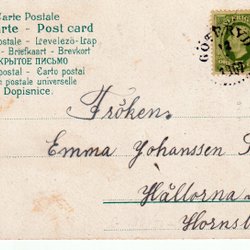 Carte Postale
arte - Post card
ostale - Levelező-Lap
- Briefkaart - Brevkort
КРЫТОЕ ПИСЬМО
postal - Carto postal
n postale universelle
Dopisnice.
Fröken
Emma Johansson
Hållorna
Hornsb